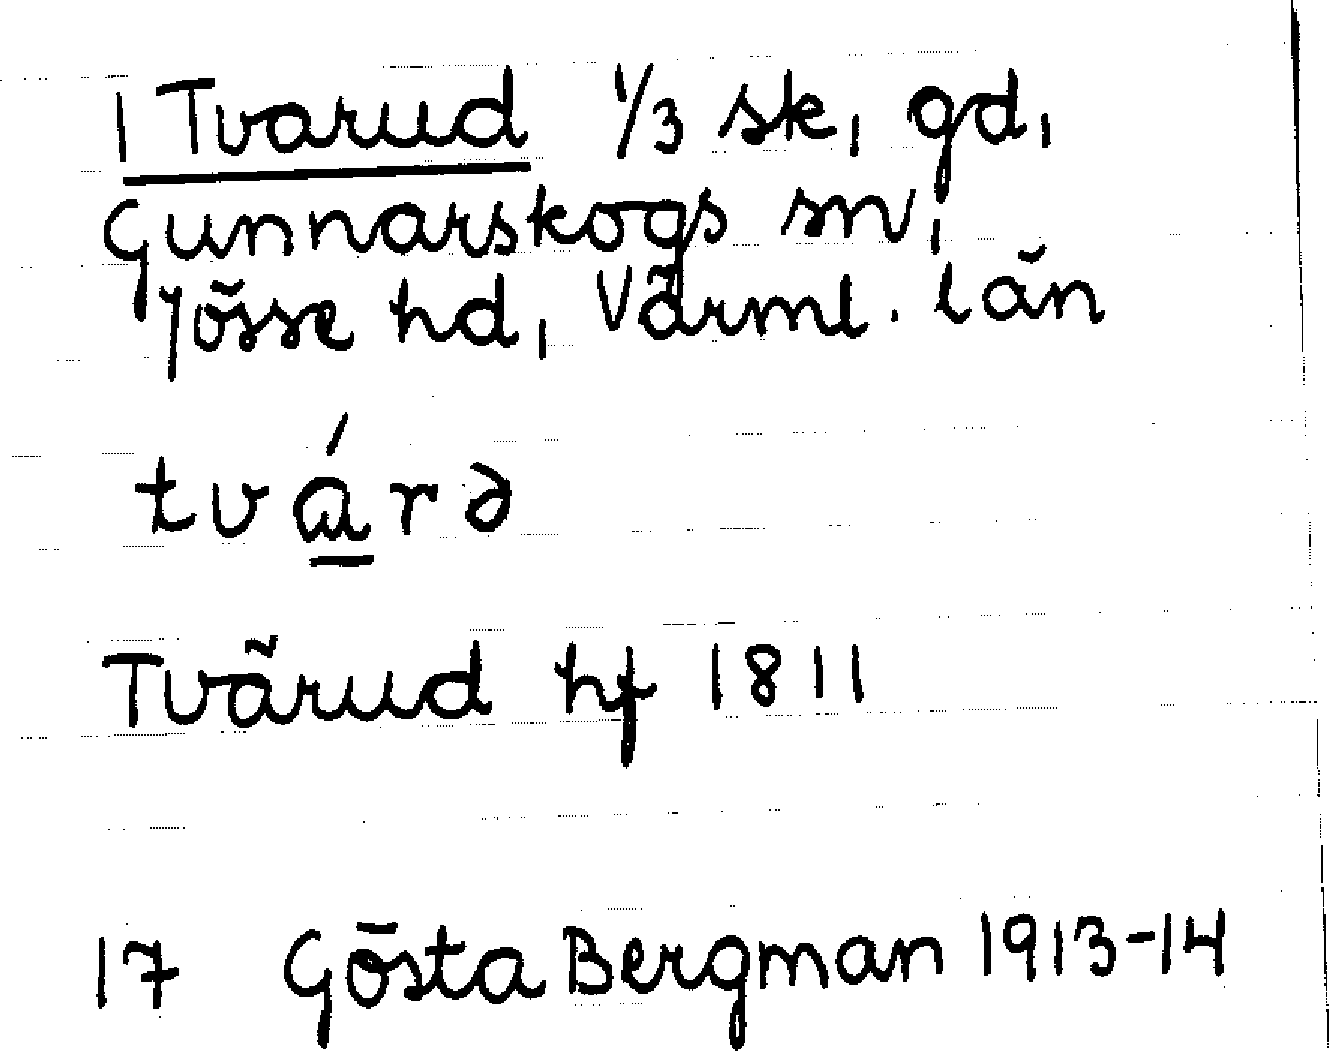 1 Tvarud 1/3 sk, gd,
Gunnarskogs sn,
Jösse hd, Värml. län
tvá̱rə
Tvärud hf 1811
17 Gösta Bergman 1913-14